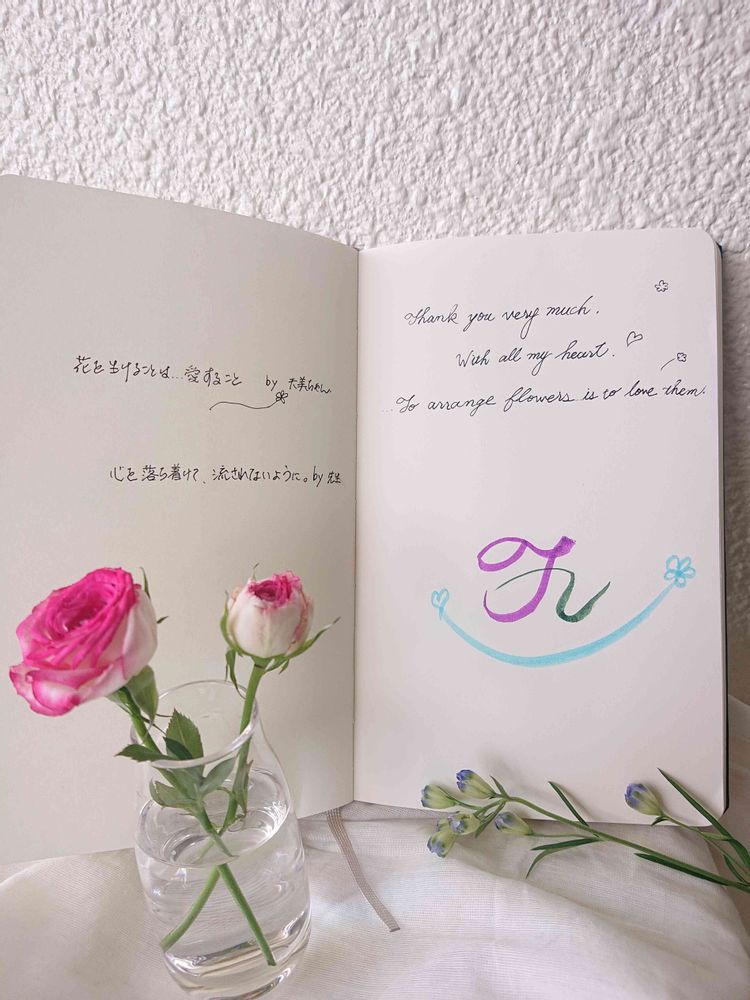 花を生けることは...愛すること by 天美ちゃん
心を落ち着けて、流されないように。by 先生
Thank you very much.
With all my heart.
...To arrange flowers is to love them.